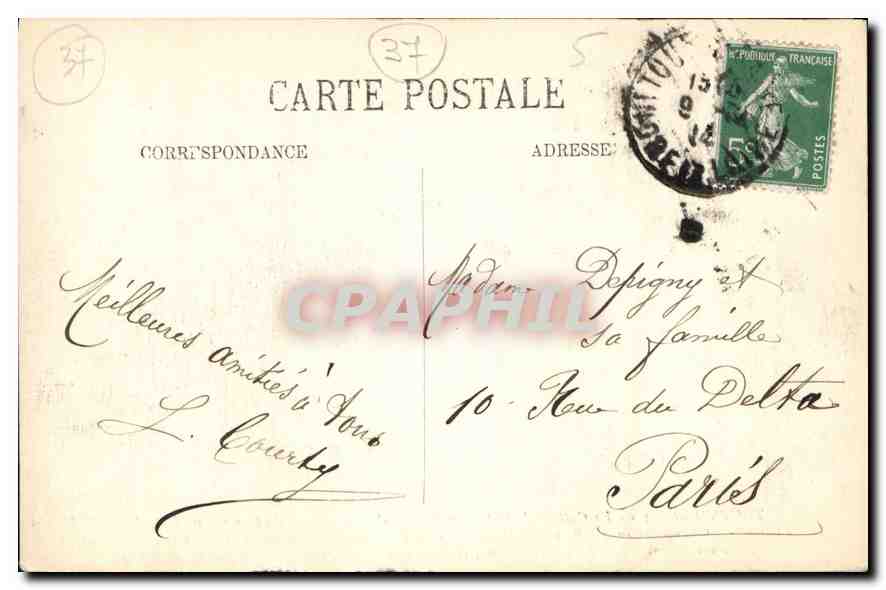 37
37
5
CARTE POSTALE
CORRESPONDANCE
ADRESSE
RÉPUBLIQUE FRANÇAISE
5c
POSTES
Meilleures
amitiés à tous
L. Courty
Madame Depigny et
sa famille
10 - Rue du Delta
Paris
CPAPHIL